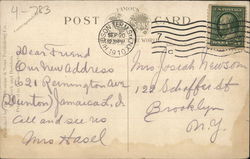 4-783
POST CARD
FAMOUS
SEP 20
1910
Dear Friend
Our New Address
is 21 Remington Ave
(Dunton) Jamaica L.I.
Call and see us
Mrs Hasel
Mrs Joseph Newson
122 Schaffer St
Brooklyn
N.Y.